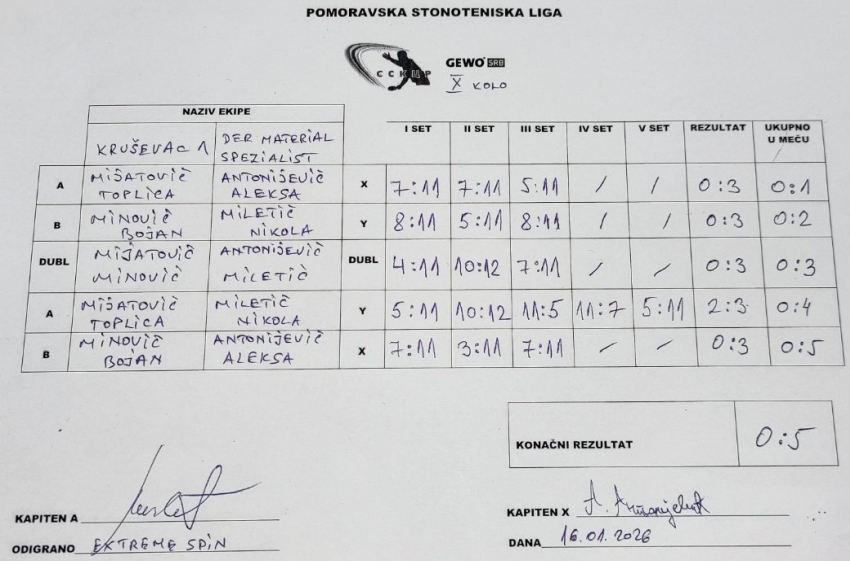 POMORAVSKA STONOTENISKA LIGA
CCKMP
GEWO SRB
X KOLO
NAZIV EKIPE
KRUŠEVAC 1 DER MATERIAL SPEZIALIST I SET II SET III SET IV SET V SET REZULTAT UKUPNO U MEČU
A MIJATOVIČ TOPLICA ANTONIJEVIČ ALEKSA X 7:11 7:11 5:11 / / 0:3 0:1
B MINOVIČ BOJAN MILETIČ NIKOLA Y 8:11 5:11 8:11 / / 0:3 0:2
DUBL MIJATOVIČ MINOVIČ ANTONIJEVIČ MILETIČ DUBL 4:11 10:12 7:11 / / 0:3 0:3
A MIJATOVIČ TOPLICA MILETIČ NIKOLA Y 5:11 10:12 11:5 11:7 5:11 2:3 0:4
B MINOVIČ BOJAN ANTONIJEVIČ ALEKSA X 7:11 3:11 7:11 / / 0:3 0:5
KONAČNI REZULTAT 0:5
KAPITEN A
KAPITEN X
ODIGRANO EXTREME SPIN
DANA 16.01.2026